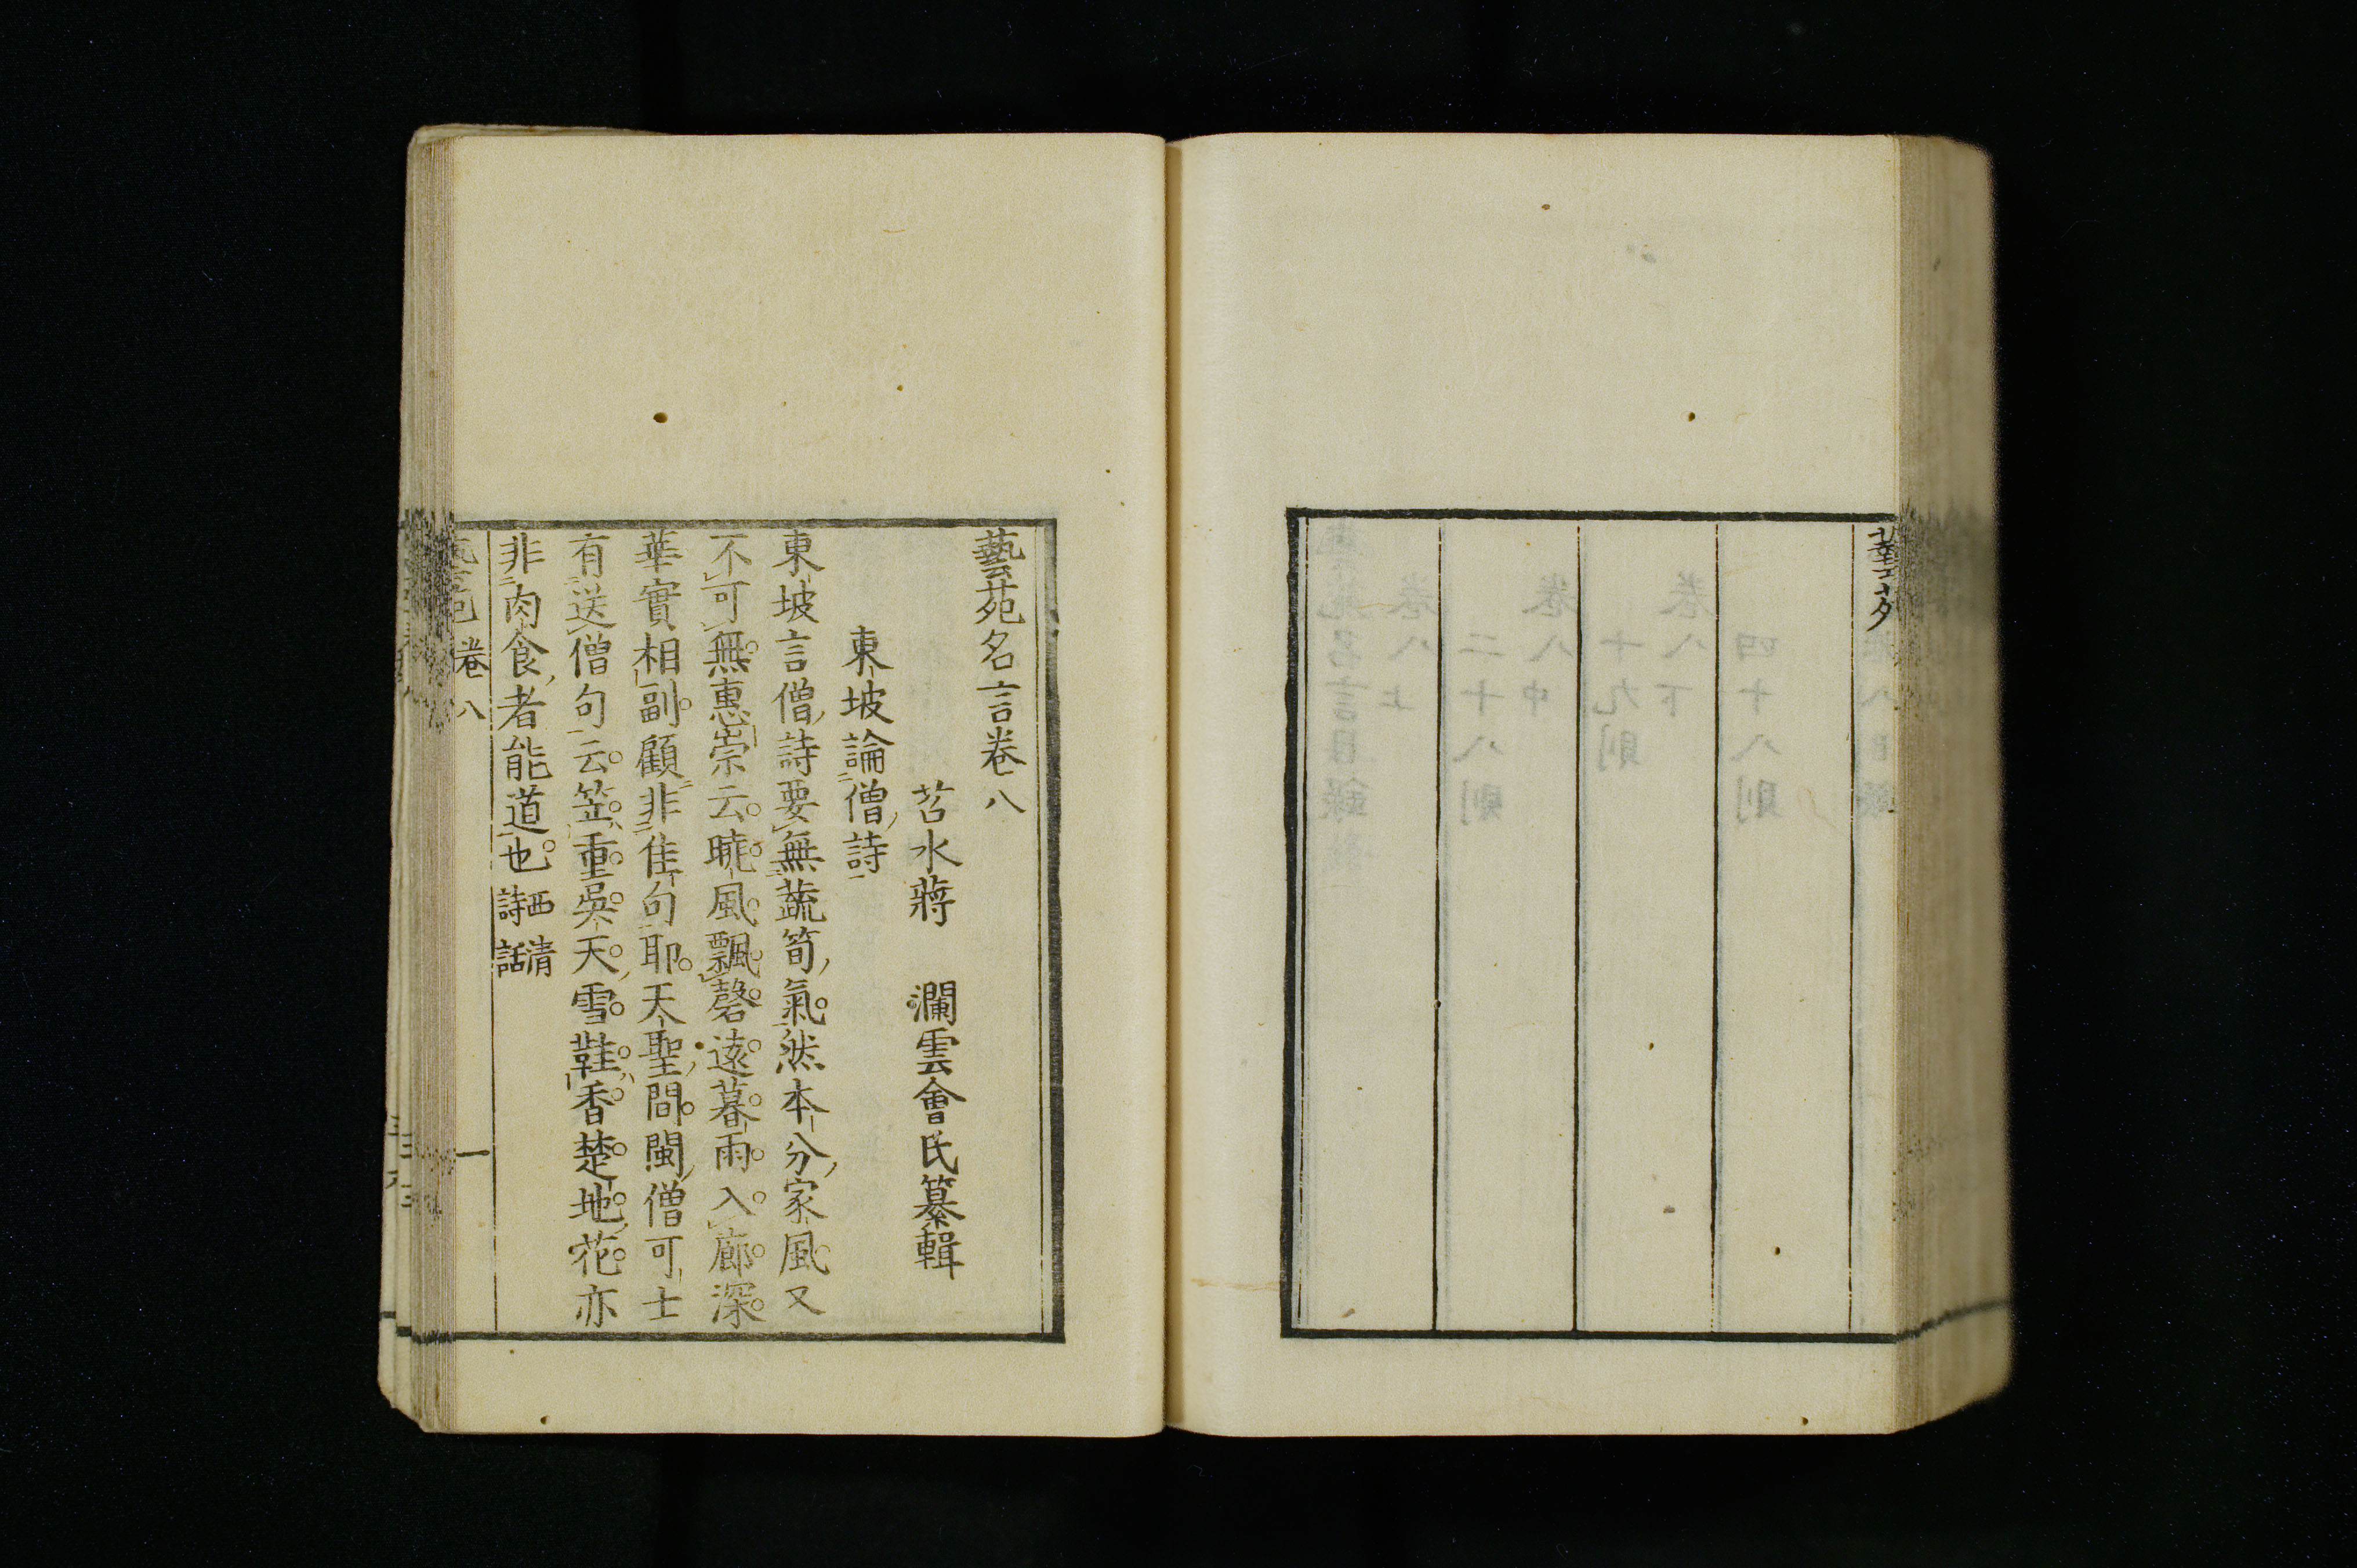 藝苑名言卷八
苕水蔣　瀾雲會氏纂輯
東坡論僧詩
東坡言僧詩要無蔬筍氣。然本分家風。又
不可無。惠崇云。曉風飄磬遠。暮雨入廊深。
華實相副。顧非隹句耶。天聖間。閩僧可士
有送僧句云。笠重吳天雪。鞋香楚地花。亦
非肉食者能道也。西清
詩話
藝苑　卷八　一